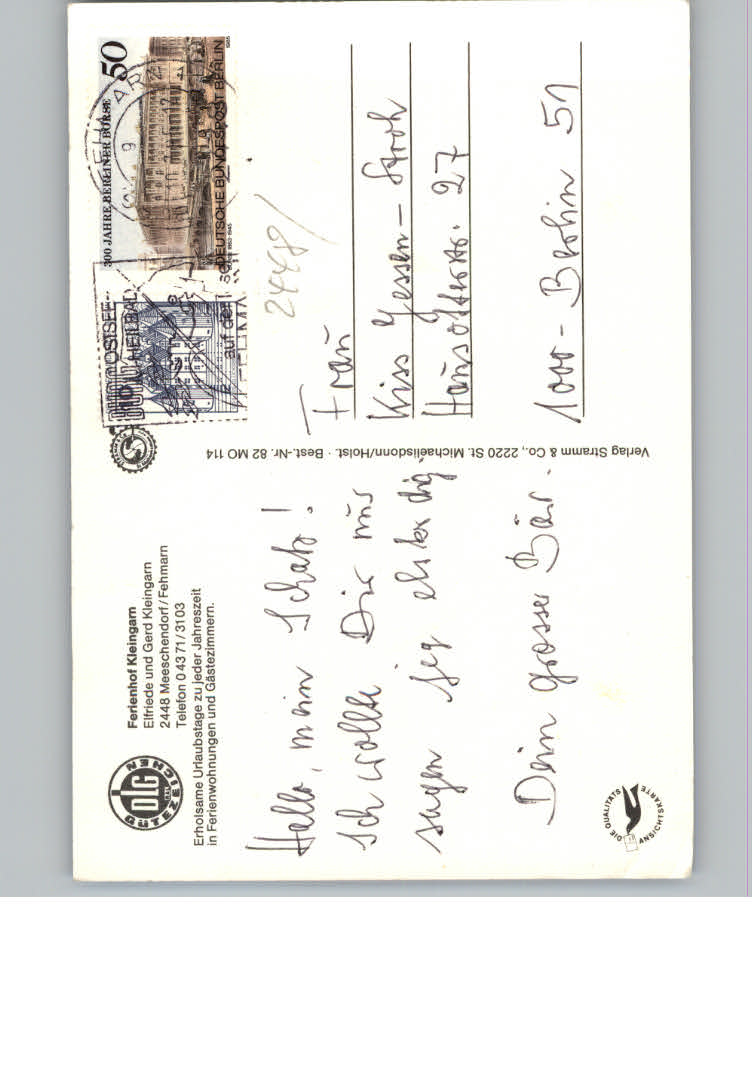 DLG
GÜTEZEICHEN
Ferienhof Kleingarn
Elfriede und Gerd Kleingarn
2448 Meeschendorf/Fehmarn
Telefon 0 43 71/3103
Erholsame Urlaubstage zu jeder Jahreszeit
in Ferienwohnungen und Gästezimmern.
Hallo, mein Schatz!
Ich wollte Dir nur
sagen
Dein grosser Bär.
DIE QUALITÄTS
ANSICHTSKARTE
Verlag Stramm & Co., 2220 St. Michaelisdonn/Holst. · Best.-Nr. 82 MO 114
OSTSEE-
HEILBAD
auf der
300 JAHRE BERLINER BÖRSE
50
DEUTSCHE BUNDESPOST BERLIN
1985
2448/
Frau
Kiss Jessen - Stroh
Haus Otterstr. 27
1000 - Berlin 51